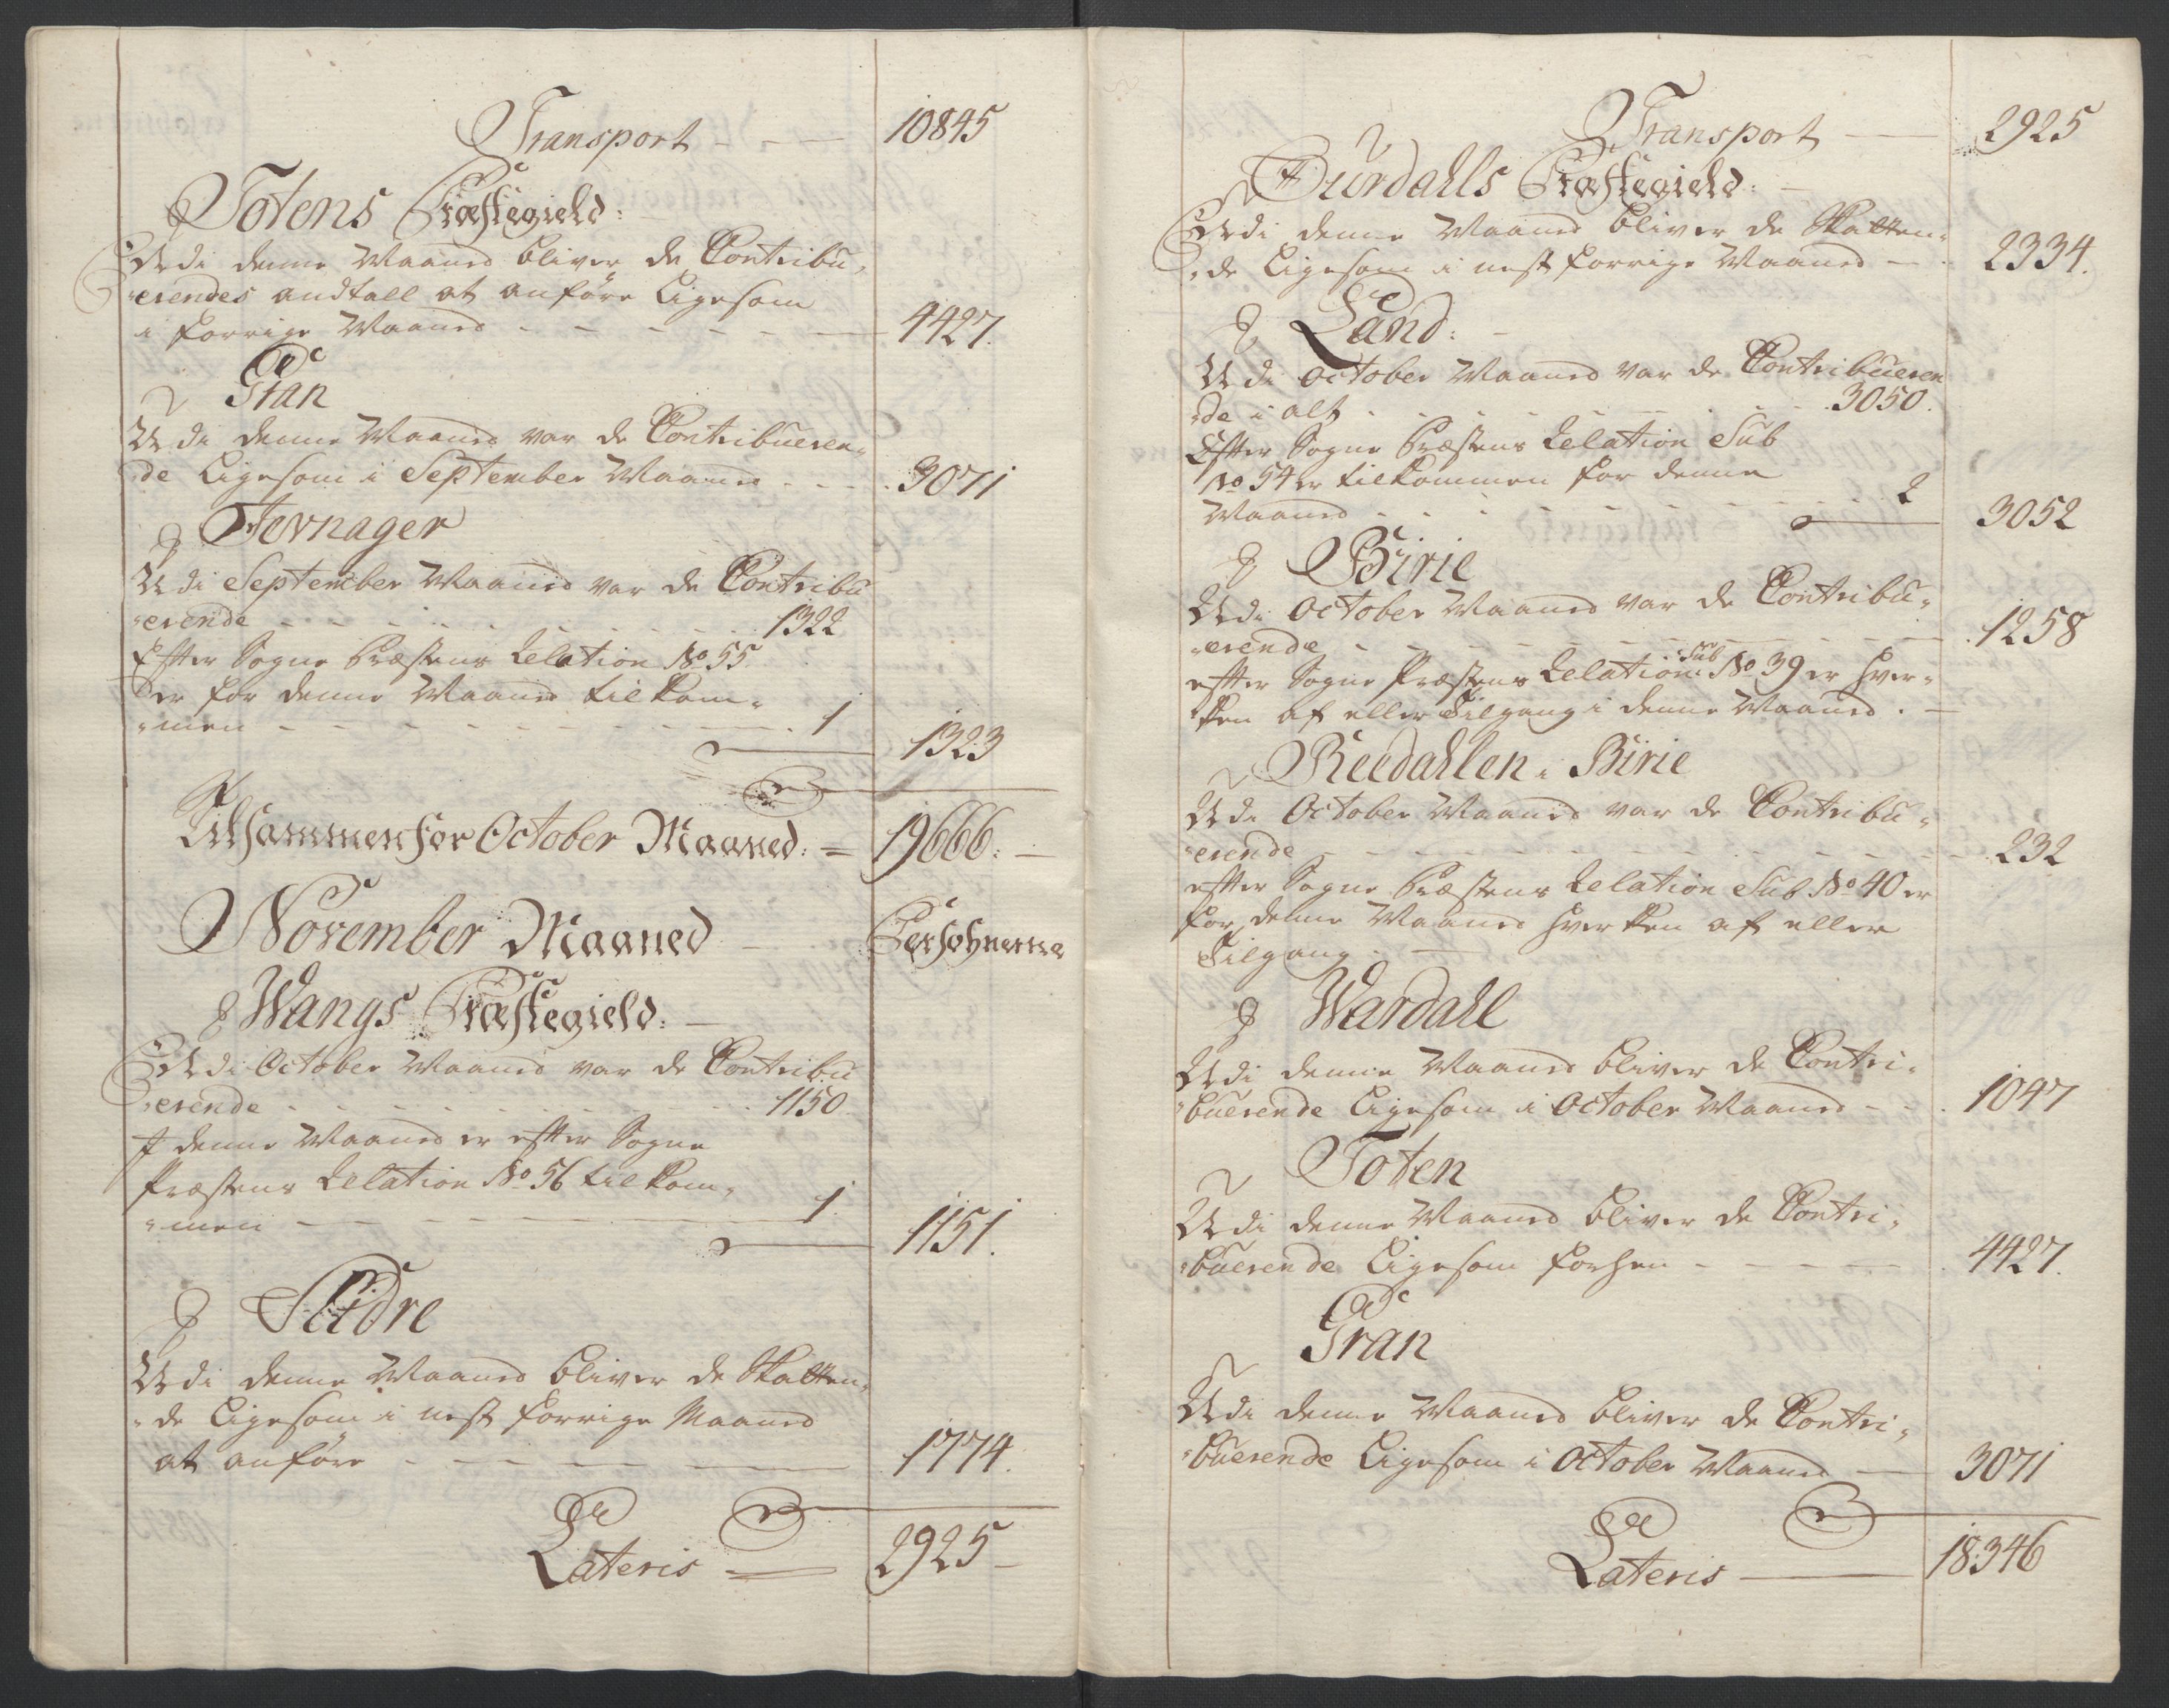 Transport - - - 10845
Totens Præstegield:
Udi denne Maaned bliver de Contribu-
erendes andtall at anføre Ligesom
i forrige Maaned - - - - - - 4427.
Gran
Udi denne Maaned var de Contribueren-
de Ligesom i September Maaned - - - 3071
Jevnager
Udi September Maaned var de Contribu
erende - - - - - - 1322
Efter Sogne Præstens Relation No 55
er for denne Maaned tilkom-
men - - - - - - 1
1323
Tilsammen for October Maaned: = 19666: -
November Maaned - Persohnerne
Wangs Præstegield: -
Udi October Maaned var de Contribu
erende - - - - - - 1150
I denne Maaned er efter Sogne
Præstens Relation No 56 tilkom-
men - - - - - - 1
1151.
Slidre
Udi denne Maaned bliver de Skatten-
de Ligesom i nest forrige Maaned
at anføre - - - - - 1774.
Lateris = 2925 -
Transport - 2925
Aurdahls Præstegield: -
Udi denne Maaned bliver de Skatten-
de Ligesom i nest forrige Maaned - 2334.
Land: -
Udi October Maaned var de Contribueren
de i alt - - - - - - 3050.
Efter Sogne Præstens Relation Sub
No 54 er tilkommen for denne
Maaned - - - - - - 2
3052
Birie
Udi October Maaned var de Contribu-
erende - - - - - - 1258
efter Sogne Præstens Relation Sub No 39 er hver-
ken af eller Tilgang i denne Maaned. -
Reedahlen i Birie
Udi October Maaned var de Contribu-
erende - - - - - - 232
efter Sogne Præstens Relation Sub No 40 er
for denne Maaned hverken af eller
Tilgang. -
Wardahl
Udi denne Maaned bliver de Contri-
buerende Ligesom i October Maaned - - 1047
Toten
Udi denne Maaned bliver de Contri-
buerende Ligesom forhen - - - - 4427.
Gran
Udi denne Maaned bliver de Contri-
buerende Ligesom i October Maaned - 3071
Lateris - 18346